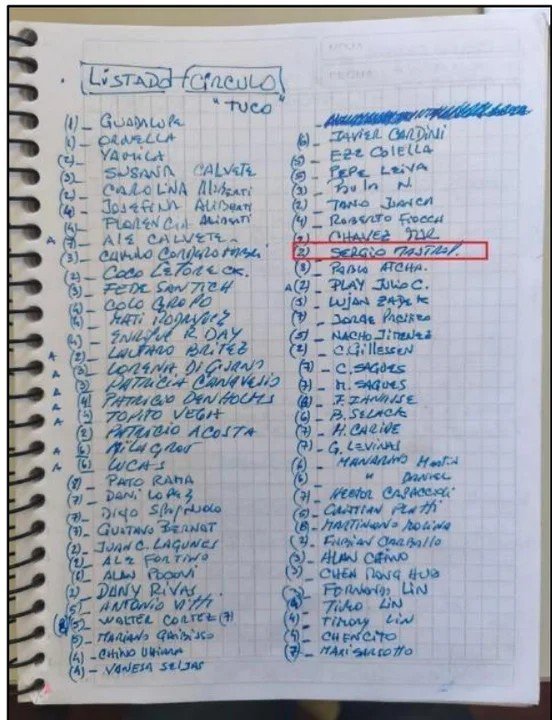 LISTADO CIRCULO
"TUCO"
(1)- GUADALUPE
ORNELLA
YAMILA
SUSANA CALVETE
CAROLINA ALIBERTI
JOSEFINA ALIBERTI
FLORENCIA ALIBERTI
A ALE CALVETE.
(3)- CAMILO CORDERO
COCO LETORE
FEDE SANTICH
COLO GROPO
MATI RODRIGUEZ
ENRIQUE R. DAY
A LAUTARO BRITEZ
LORENA DI GIORNO
A PATRICIA CANAVESIO
A PATRICIO DENHOLMS
A TOPITO VEGA
PATRICIO ACOSTA
A (6) MILAGROS
A (6) LUCAS
PATO RAMA
(7)- DANI LOPEZ
DIEGO SPAGNUOLO
GUSTAVO BERNAT
(2)- JUAN C. LAGUNES
ALE FORTINO
ALAN POCOVI
DANY RIVAS
ANTONIO VITTI
WALTER CORTEZ (7)
MARIANO
(4)- CHINO
VANESA SEIJAS
(6)- JAVIER CARDINI
(5)- EZE COLELLA
(5)- PEPE LEIVA
N.
TANO
ROBERTO FIOCCHI
CHAVEZ
(2) SERGIO MASTROP.
PABLO ATCHA.
A (2) PLAY JULIO C.
LUJAN
JORGE PACIFICO
(5)- NACHO JIMENEZ
C. GILLESSEN
(7)- C. SAGUES
(7)- M. SAGUES
F. ZANASSE
(6)- B. SELACK
(7)- M. CARIDE
(7)- G. LEVINAS
MANARINO Martin
" DANIEL
(7)- HECTOR CAPACCIOLI
CRISTIAN PLATTI
MARTINIANO MOLINA
FABIAN CARBALLO
ALAN CHINO
CHEN DONG HUB
FERNANDO LIN
TINKO LIN
TIMMY LIN
CHENCITO
(7)- MARI SARSOTTO